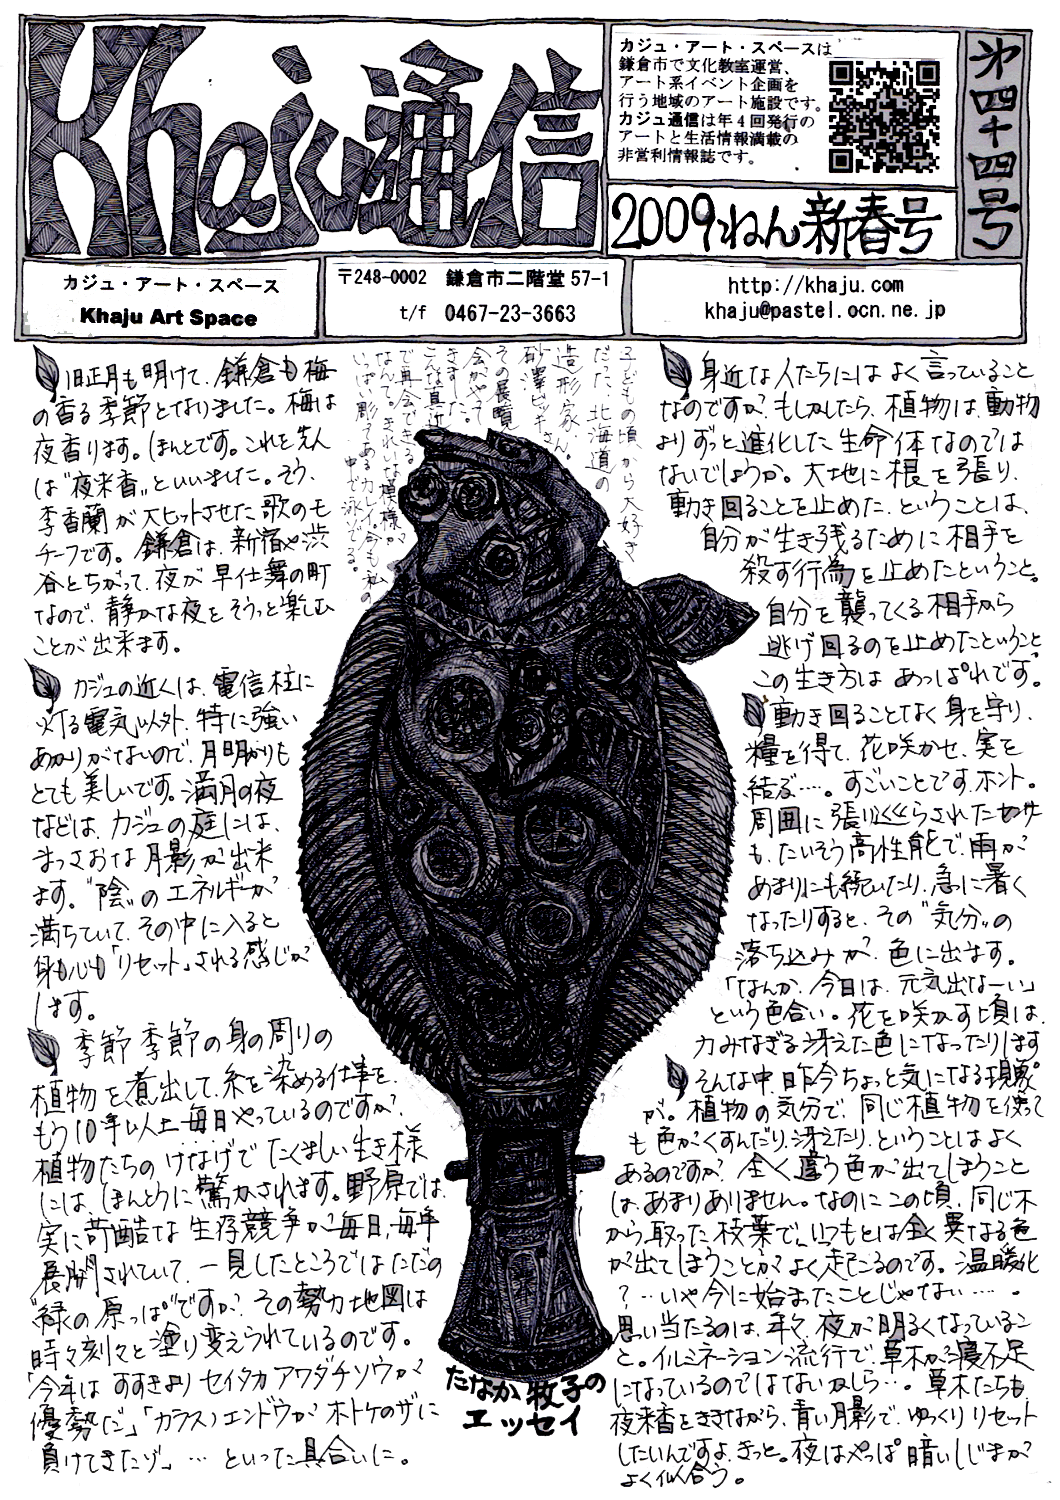 Khaju通信
カジュ・アート・スペースは
鎌倉市で文化教室運営、
アート系イベント企画を
行う地域のアート施設です。
カジュ通信は年4回発行の
アートと生活情報満載の
非営利情報誌です。
第四十四号
2009ねん新春号
カジュ・アート・スペース
Khaju Art Space
〒248-0002 鎌倉市二階堂57-1
t/f 0467-23-3663
http://khaju.com
khaju@pastel.ocn.ne.jp
旧正月も明けて、鎌倉も梅
の香る季節となりました。梅は
夜香ります。ほんとです。これを先人
は“夜来香”といいました。そう、
李香蘭が大ヒットさせた歌のモ
チーフです。鎌倉は、新宿や渋
谷とちがって、夜が早仕舞の町
なので、静かな夜をそうっと楽しむ
ことが出来ます。
カジュの近くは、電信柱に
灯る電気以外、特に強い
あかりがないので、月明かりも
とても美しいです。満月の夜
などは、カジュの庭には、
まっさおな月影が出来
ます。“陰”のエネルギーが
満ちていて、その中に入ると
身も心も「リセット」される感じが
します。
季節季節の身の周りの
植物を煮出して、糸を染める仕事を、
もう10年以上毎日やっているのですが、
植物たちのけなげでたくましい生き様
には、ほんとうに驚かされます。野原では、
実に苛酷な生存競争が毎日、毎年
展開されていて、一見したところではただの
“緑の原っぱ”ですが、その勢力地図は
時々刻々と塗り変えられているのです。
「今年はすすきよりセイタカアワダチソウが
優勢だ」「カラスノエンドウがホトケノザに
負けてきたゾ」…といった具合いに。
子どもの頃から大好き
だった、北海道の
造形家、
砂澤ビッキさん。
その展覧
会がやって
きました。
こんな真近
で再会できる
なんて。きれいな模様が
いっぱい彫ってあるカレイ。今も私の
中で泳いでる。
たなか牧子の
エッセイ
身近な人たちにはよく言っていること
なのですが、もしかしたら、植物は、動物
よりずっと進化した生命体なのでは
ないでしょうか。大地に根を張り、
動き回ることを止めた、ということは、
自分が生き残るために相手を
殺す行為を止めたということ。
自分を襲ってくる相手から
逃げ回るのを止めたということ。
この生き方はあっぱれです。
動き回ることなく身を守り、
糧を得て、花咲かせ、実を
結ぶ…。すごいことです、ホント。
周囲に張り巡らされたセンサー
も、たいそう高性能で、雨が
あまりにも続いたり、急に暑く
なったりすると、その“気分”の
落ち込みが、色に出ます。
「なんか、今日は、元気出なーい」
という色合い。花を咲かす頃は、
力みなぎる冴えた色になったりします。
そんな中、昨今ちょっと気になる現象
が。植物の気分で、同じ植物を使って
も色がくすんだり、冴えたり、ということはよく
あるのですが、全く違う色が出てしまうこと
は、あまりありません。なのにこの頃、同じ木
から取った枝葉で、いつもとは全く異なる色
が出てしまうことがよく起こるのです。温暖化
?…いや今に始まったことじゃない……。
思い当たるのは、年々、夜が明るくなっているこ
と。イルミネーション流行で、草木が寝不足
になっているのではないかしら…。草木たちも、
夜来香をききながら、青い月影で、ゆっくりリセット
したいんですよ、きっと。夜はやっぱ暗いしじまが
よく似合う。